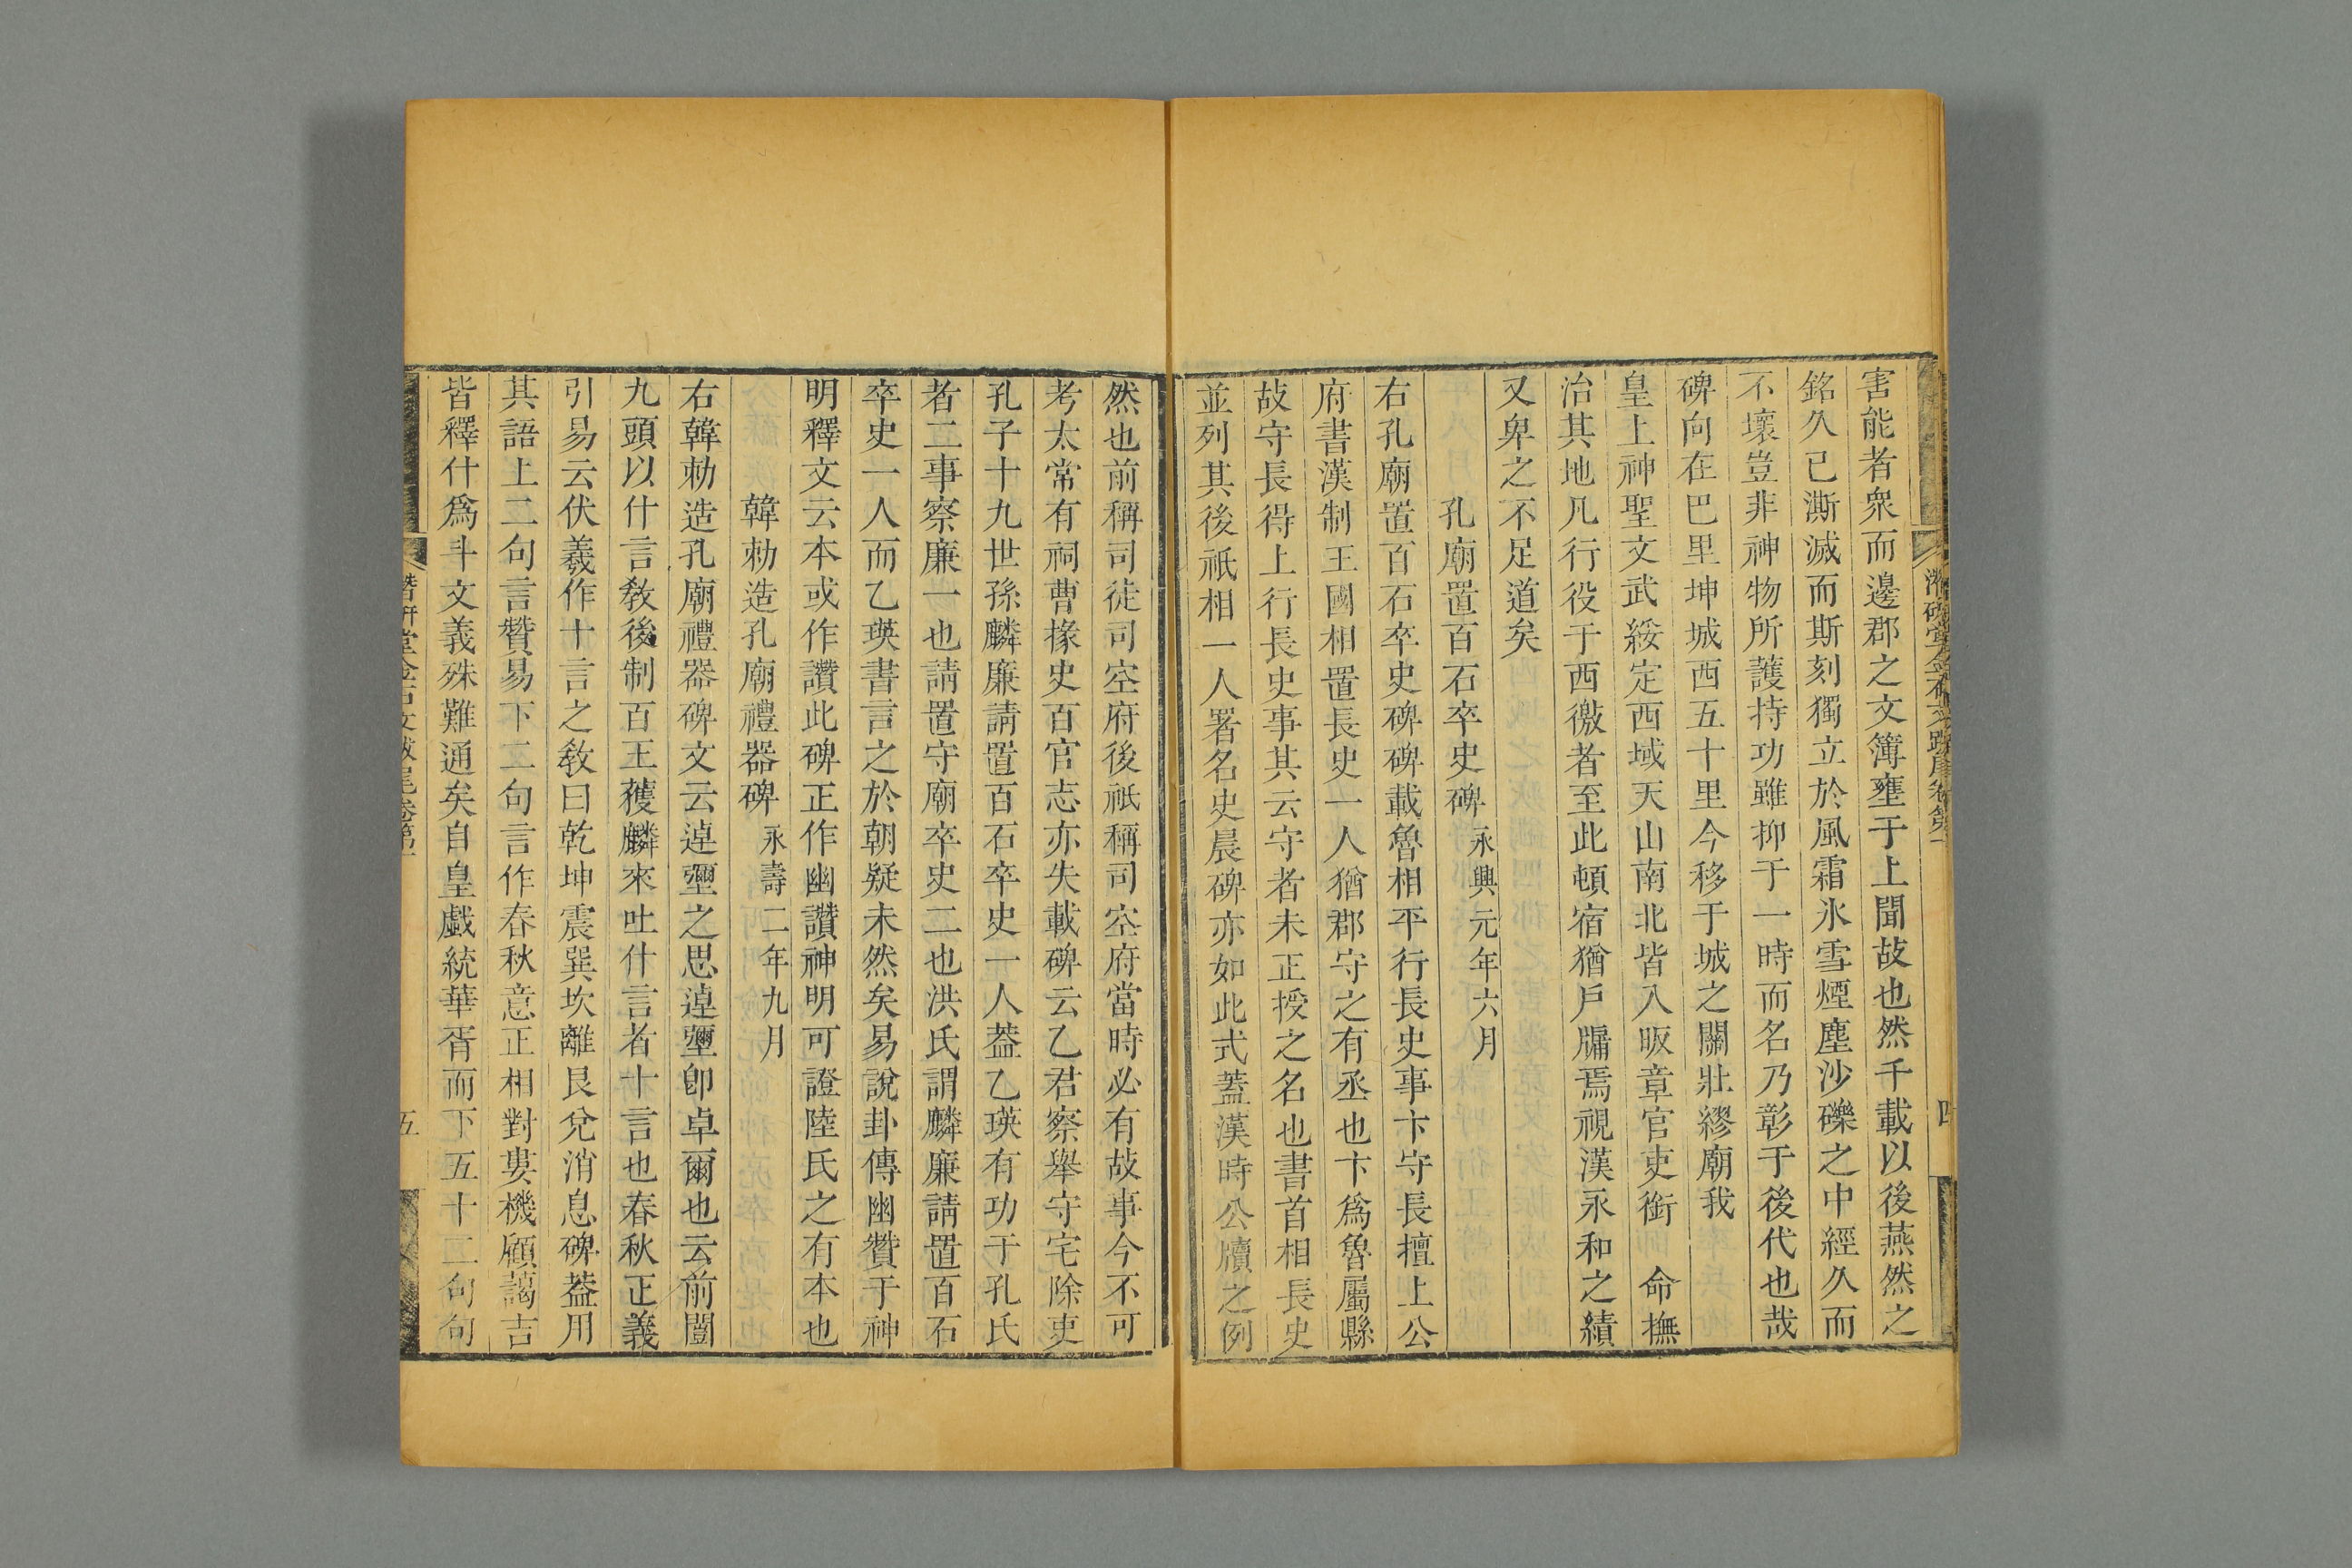 害能者衆而邊郡之文簿壅于上聞故也然千載以後燕然之
銘久已漸滅而斯刻獨立於風霜氷雪煙塵沙礫之中經久而
不壞豈非神物所護持功雖抑于一時而名乃彰于後代也哉
碑向在巴里坤城西五十里今移于城之關壯繆廟我
皇上神聖文武綏定西域天山南北皆入昄章官吏銜 命撫
治其地凡行役于西徼者至此頓宿猶戶牖焉視漢永和之績
又卑之不足道矣
孔廟置百石卒史碑 永興元年六月
右孔廟置百石卒史碑碑載魯相平行長史事卞守長擅上公
府書漢制王國相置長史一人猶郡守之有丞也卞爲魯屬縣
故守長得上行長史事其云守者未正授之名也書首相長史
並列其後祇相一人署名史晨碑亦如此式蓋漢時公牘之例
然也前稱司徒司空府後祇稱司空府當時必有故事今不可
考太常有祠曹掾史百官志亦失載碑云乙君察舉守宅除吏
孔子十九世孫麟廉請置百石卒史一人葢乙瑛有功于孔氏
者二事察廉一也請置守廟卒史二也洪氏謂麟廉請置百石
卒史一人而乙瑛書言之於朝疑未然矣易說卦傳幽贊于神
明釋文云本或作讚此碑正作幽讚神明可證陸氏之有本也
韓勑造孔廟禮器碑 永壽二年九月
右韓勑造孔廟禮器碑文云逴彌之思逴彌卽卓爾也云前闓
九頭以什言敎後制百王獲麟來吐什言者十言也春秋正義
引易云伏羲作十言之敎曰乾坤震巽坎離艮兌消息碑葢用
其語上二句言贊易下二句言作春秋意正相對婁機顧藹吉
皆釋什爲斗文義殊難通矣自皇戲統華胥而下五十二句句
潛研堂金石文跋尾卷第一
五